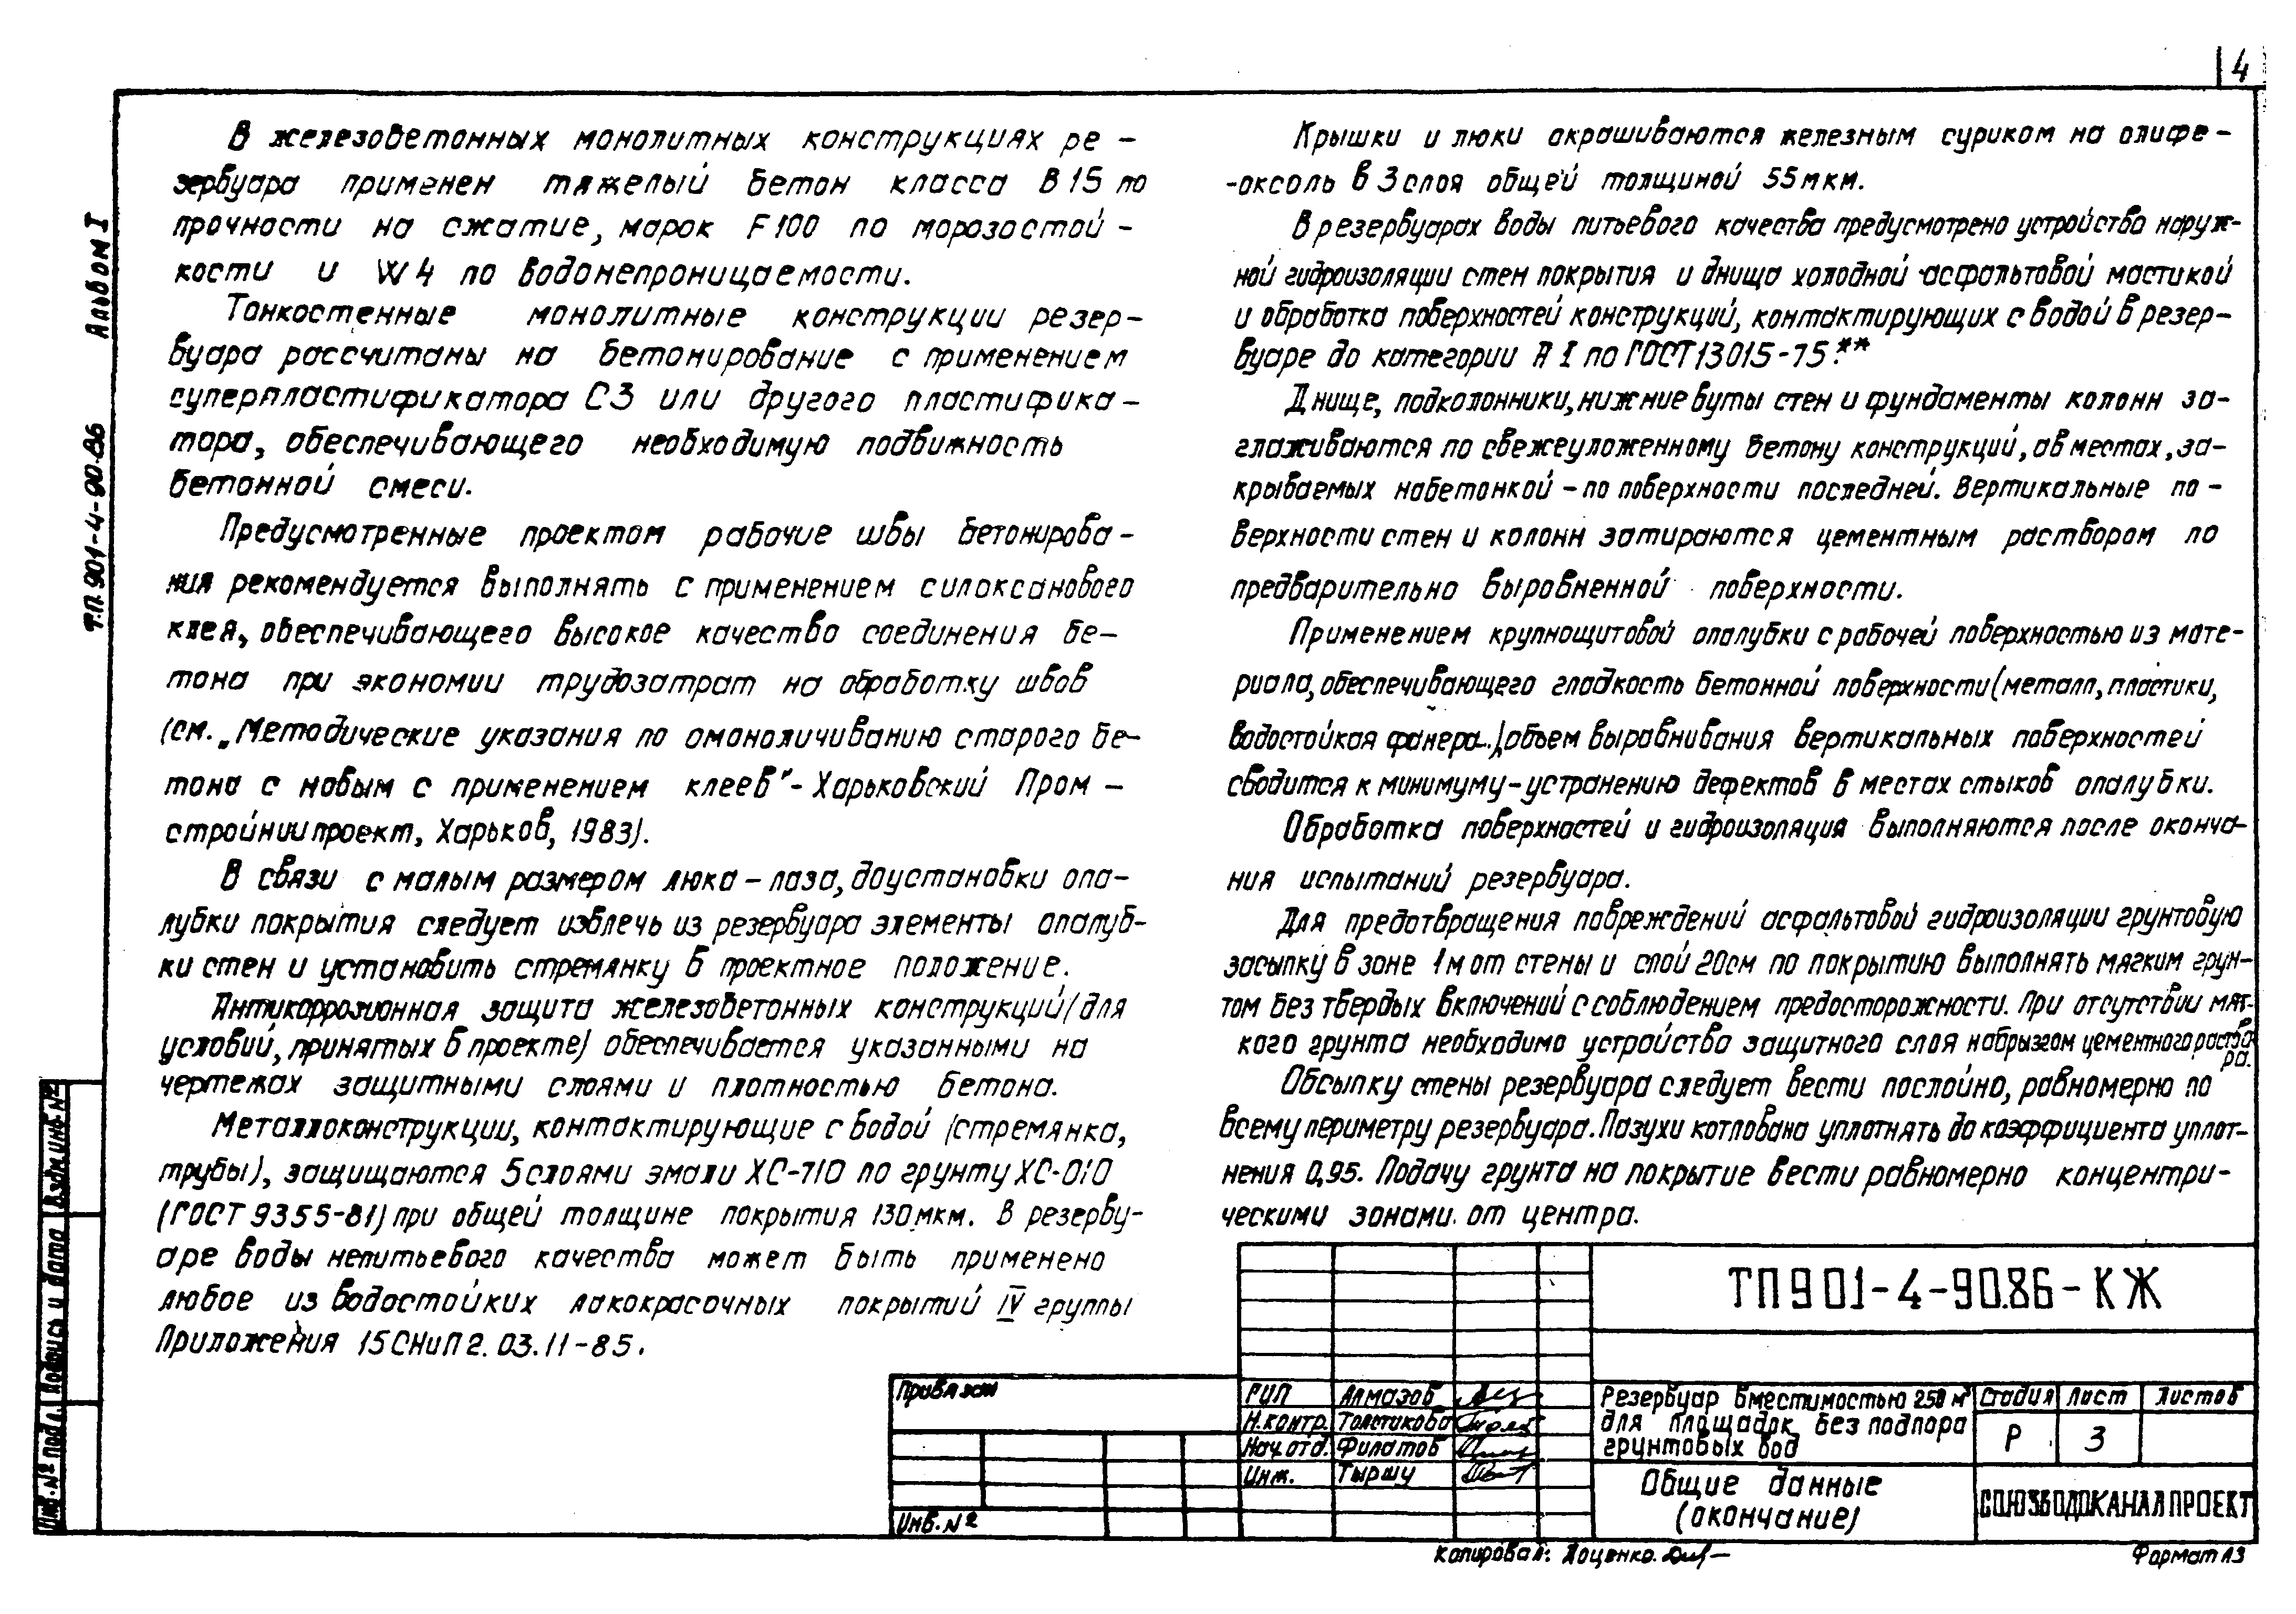 4
Альбом I
Т.П. 901-4-90.86
В железобетонных монолитных конструкциях ре-
зервуара применен тяжелый бетон класса В 15 по
прочности на сжатие, марок F 100 по морозостой-
кости и W4 по водонепроницаемости.
Тонкостенные монолитные конструкции резер-
вуара рассчитаны на бетонирование с применением
суперпластификатора С3 или другого пластифика-
тора, обеспечивающего необходимую подвижность
бетонной смеси.
Предусмотренные проектом рабочие швы бетонирова-
ния рекомендуется выполнять с применением силоксанового
клея, обеспечивающего высокое качество соединения бе-
тона при экономии трудозатрат на обработку швов
(см. „Методические указания по омоноличиванию старого бе-
тона с новым с применением клеев" - Харьковский Пром-
стройниипроект, Харьков, 1983).
В связи с малым размером люка-лаза, доустановки опа-
лубки покрытия следует извлечь из резервуара элементы опалуб-
ки стен и установить стремянку в проектное положение.
Антикоррозионная защита железобетонных конструкций (для
условий, принятых в проекте) обеспечивается указанными на
чертежах защитными слоями и плотностью бетона.
Металлоконструкции, контактирующие с водой (стремянка,
трубы), защищаются 5 слоями эмали ХС-710 по грунту ХС-010
(ГОСТ 9355-81) при общей толщине покрытия 130 мкм. В резерву-
аре воды непитьевого качества может быть применено
любое из водостойких лакокрасочных покрытий IV группы
Приложения 15 СНиП 2.03.11-85.
Крышки и люки окрашиваются железным суриком на олифе-
-оксоль в 3 слоя общей толщиной 55 мкм.
В резервуарах воды питьевого качества предусмотрено устройство наруж-
ной гидроизоляции стен покрытия и днища холодной асфальтовой мастикой
и обработка поверхностей конструкций, контактирующих с водой в резер-
вуаре до категории А I по ГОСТ 13015-75.**
Днище, подколонники, нижние буты стен и фундаменты колонн за-
глаживаются по свежеуложенному бетону конструкций, а в местах, за-
крываемых набетонкой - по поверхности последней. Вертикальные по-
верхности стен и колонн затираются цементным раствором по
предварительно выровненной поверхности.
Применением крупнощитовой опалубки с рабочей поверхностью из мате-
риала, обеспечивающего гладкость бетонной поверхности (металл, пластики,
водостойкая фанера..) объем выравнивания вертикальных поверхностей
сводится к минимуму-устранению дефектов в местах стыков опалубки.
Обработка поверхностей и гидроизоляция выполняются после оконча-
ния испытаний резервуара.
Для предотвращения повреждений асфальтовой гидроизоляции грунтовую
засыпку в зоне 1м от стены и слой 20см по покрытию выполнять мягким грун-
том без твердых включений с соблюдением предосторожности. При отсутствии мяг-
кого грунта необходимо устройство защитного слоя набрызгом цементного раство
ра.
Обсыпку стены резервуара следует вести послойно, равномерно по
всему периметру резервуара. Пазухи котлована уплотнять до коэффициента уплот-
нения 0,95. Подачу грунта на покрытие вести равномерно концентри-
ческими зонами от центра.
ТП 901-4-90.86-КЖ
Привязан
Инв. №
ГИП Алмазов
Н.контр. Толстикова
Нач.отд. Филатов
Инж. Тыршу
Резервуар вместимостью 250 м³
для площадок без подпора
грунтовых вод
Стадия Лист Листов
Р 3
Общие данные
(окончание)
СОЮЗВОДОКАНАЛПРОЕКТ
Копировал: Лоценко.
Формат А3
Инв. № подл. Подпись и дата Взам.инв.№